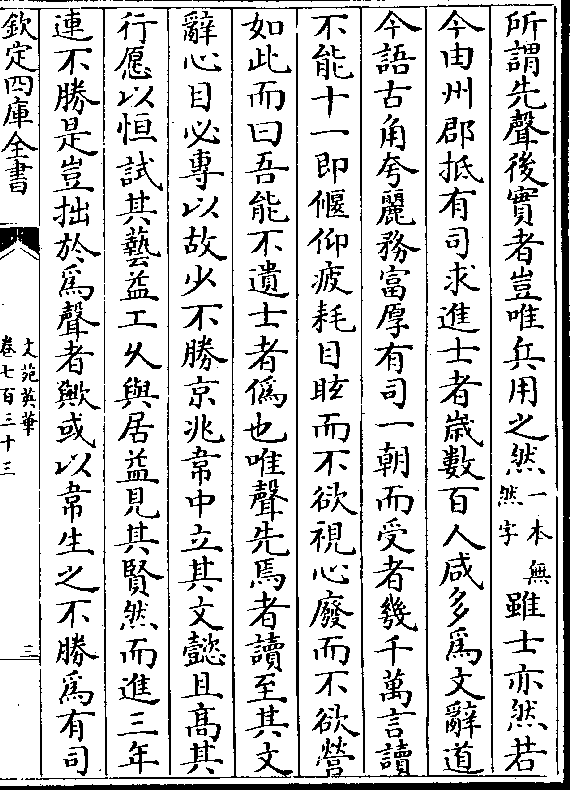 所謂先聲後實者豈唯兵用之然一本無然字雖士亦然若
今由州郡抵有司求進士者歳數百人咸多爲文辭道
今語古角夸麗務富厚有司一朝而受者幾千萬言讀
不能十一即偃仰疲耗目眩而不欲視心廢而不欲營
如此而曰吾能不遺士者僞也唯聲先焉者讀至其文
辭心目必専以故少不勝京兆韋中立其文懿且髙其
行愿以恒試其藝益工久與居益見其賢然而進三年
連不勝是豈拙於爲聲者歟或以韋生之不勝爲有司
欽定四庫全書
文苑英華
卷七百三十三
三